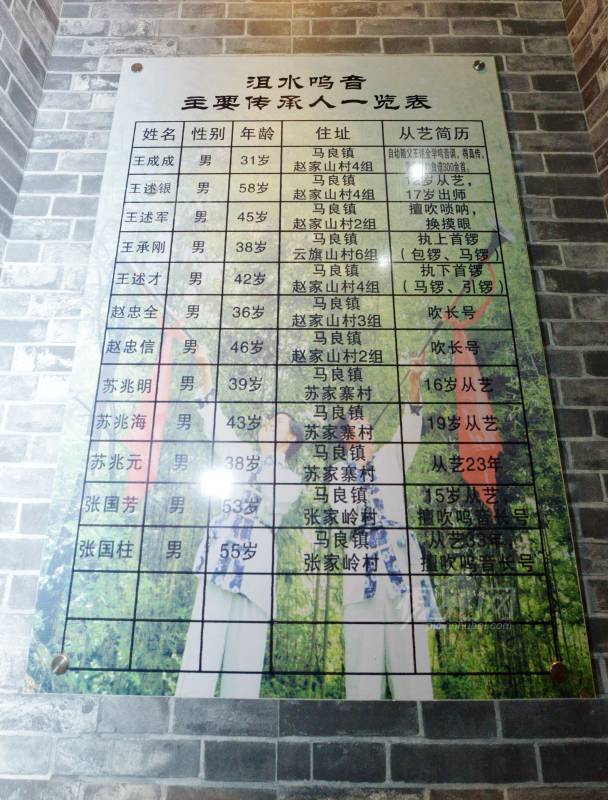 沮水呜音
主要传承人一览表
姓名 性别 年龄 住址 从艺简历
王成成 男 31岁 马良镇 赵家山村4组 自幼随父王述全学呜音调，得真传，
300余首。
王述银 男 58岁 马良镇 赵家山村4组 岁从艺，
17岁出师
王述军 男 45岁 马良镇 赵家山村2组 擅吹唢呐，
换摸眼
王承刚 男 38岁 马良镇 云旗山村6组 执上首锣
（包锣、马锣）
王述才 男 42岁 马良镇 赵家山村4组 执下首锣
（马锣、引锣）
赵忠全 男 36岁 马良镇 赵家山村3组 吹长号
赵忠信 男 46岁 马良镇 赵家山村2组 吹长号
苏兆明 男 39岁 马良镇 苏家寨村 16岁从艺
苏兆海 男 43岁 马良镇 苏家寨村 19岁从艺
苏兆元 男 38岁 马良镇 苏家寨村 从艺23年
张国芳 男 53岁 马良镇 张家岭村 15岁从艺
擅吹呜音长号
张国柱 男 55岁 马良镇 张家岭村 从艺33年
擅吹呜音长号